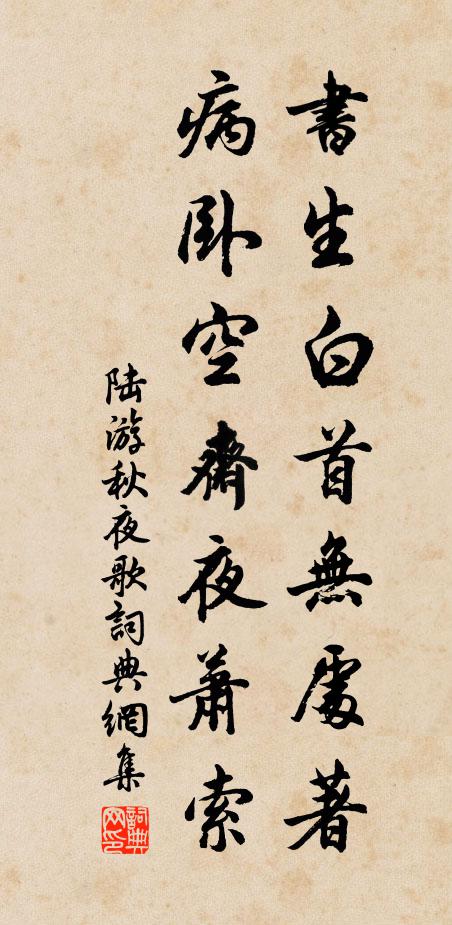 書生白首無處著
病卧空齋夜蕭索
陸游秋夜歌詞典網集
詞典网印